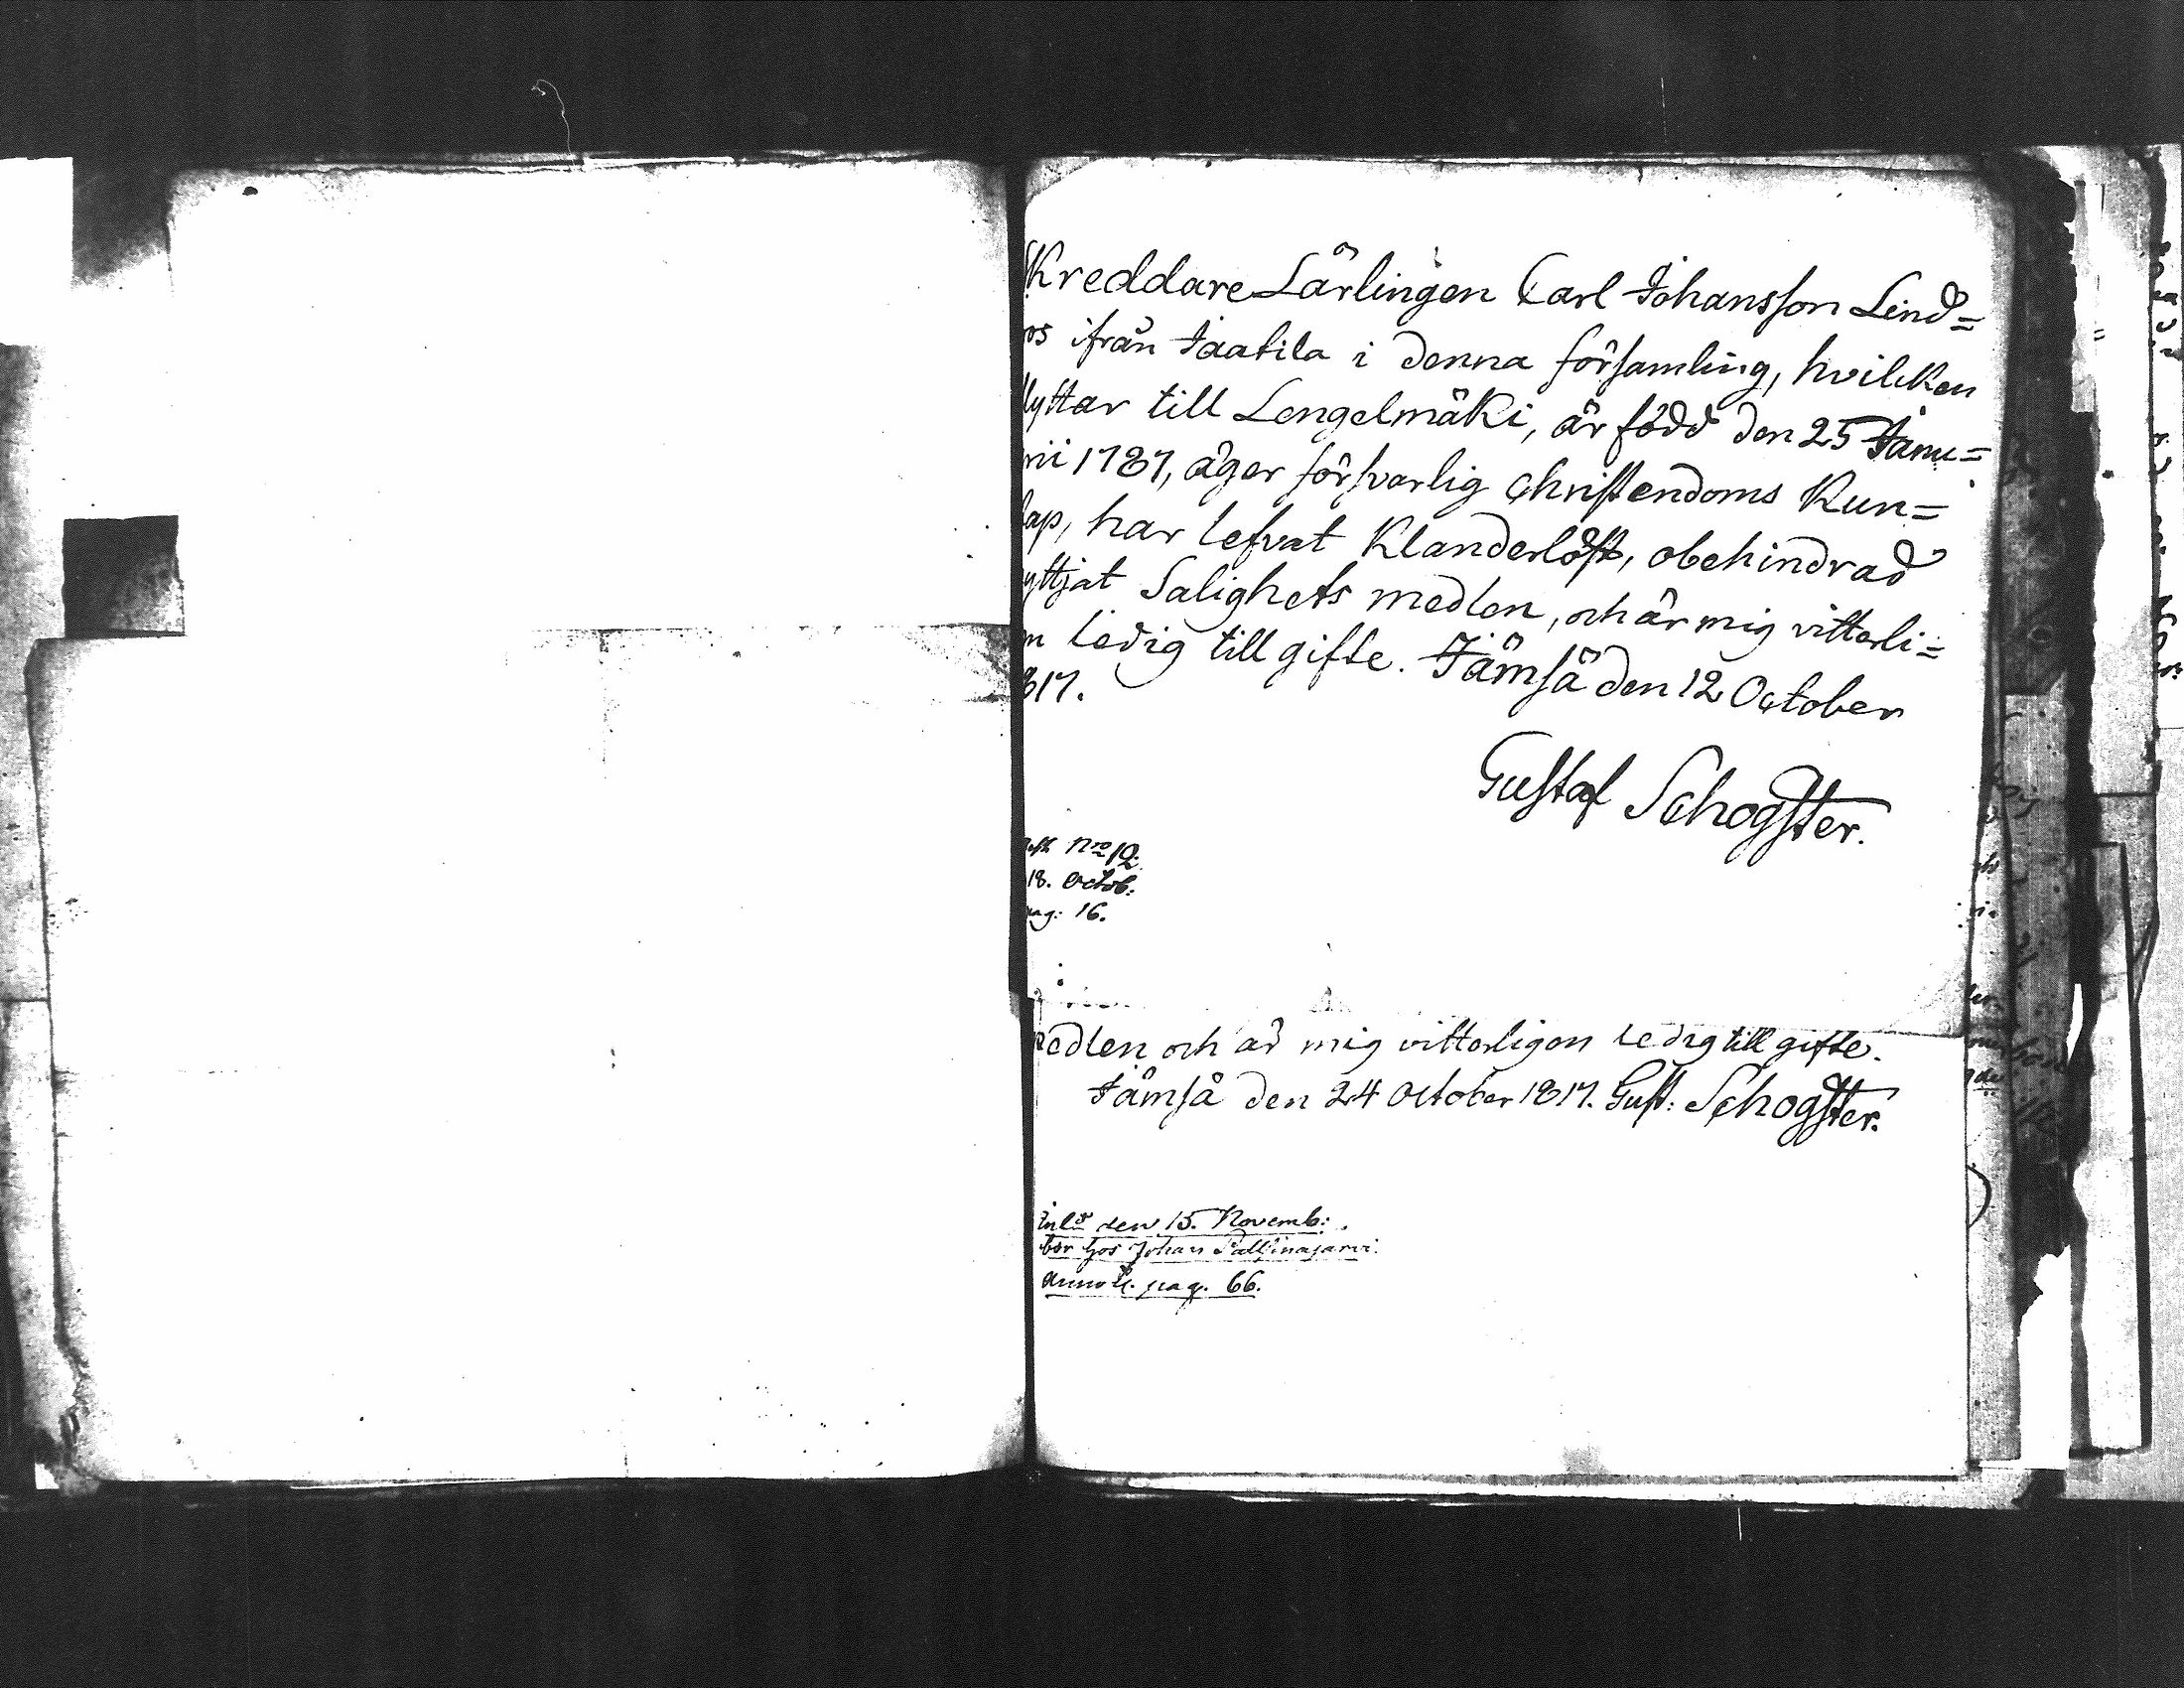 Kreddare Lärlingen Carl Johansson Lind=
os ifrån Jaatila i denna församling, hvilken
lyttar till Lengelmäki, är född den 25 Janu=
rii 1787, äger försvarlig Christendoms Kun=
ap, har lefvat Klanderlöst, obehindrad
yttjat Salighets medlen, och är mig vitterli=
n ledig till gifte. Jämsä den 12 October
817.
Gustaf Schogster.
Nro 12.
18. Octob:
pag: 16.
edlen och är mig vitterligen ledig till gifte.
Jämsä den 24 October 1817. Gust: Schogster.
Inld den 15. Novemb:
bor hos Johan
Annot. pag. 66.